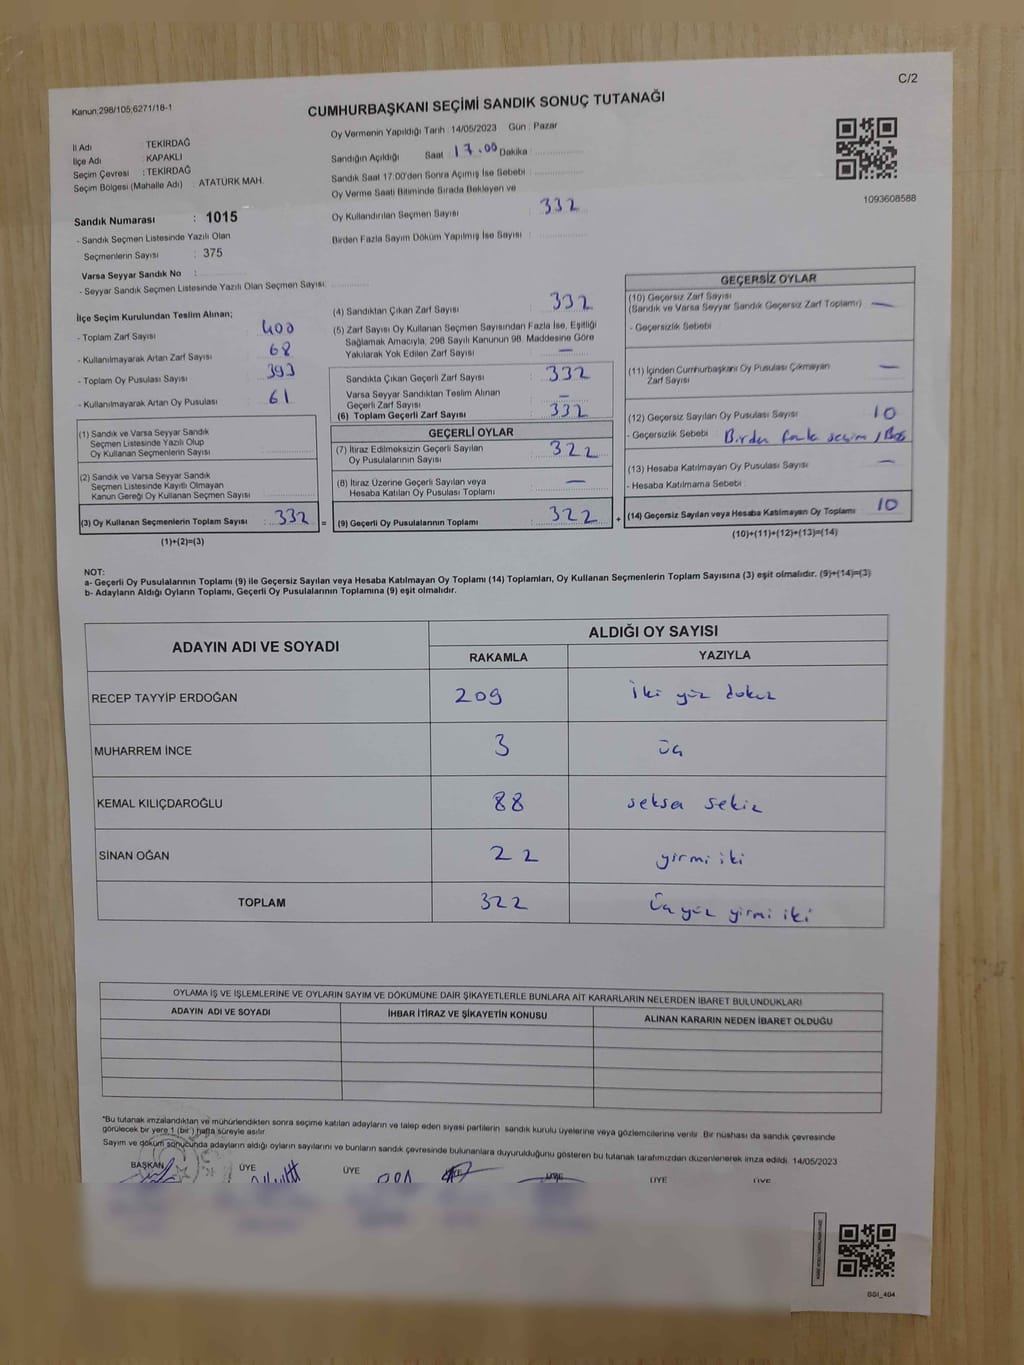 C/2
Kanun:298/105;6271/18-1
CUMHURBAŞKANI SEÇİMİ SANDIK SONUÇ TUTANAĞI
İl Adı : TEKİRDAĞ
İlçe Adı : KAPAKLI
Seçim Çevresi : TEKİRDAĞ
Seçim Bölgesi (Mahalle Adı) : ATATÜRK MAH.
Sandık Numarası : 1015
- Sandık Seçmen Listesinde Yazılı Olan
Seçmenlerin Sayısı : 375
Varsa Seyyar Sandık No :
- Seyyar Sandık Seçmen Listesinde Yazılı Olan Seçmen Sayısı:
Oy Vermenin Yapıldığı Tarih : 14/05/2023 Gün : Pazar
Sandığın Açıldığı Saat 17.00 Dakika :
Sandık Saat 17:00'den Sonra Açılmış İse Sebebi :
Oy Verme Saati Bitiminde Sırada Bekleyen ve
Oy Kullandırılan Seçmen Sayısı : 332
Birden Fazla Sayım Döküm Yapılmış İse Sayısı :
1093608588
İlçe Seçim Kurulundan Teslim Alınan;
- Toplam Zarf Sayısı : 400
- Kullanılmayarak Artan Zarf Sayısı : 68
- Toplam Oy Pusulası Sayısı : 393
- Kullanılmayarak Artan Oy Pusulası : 61
(1) Sandık ve Varsa Seyyar Sandık
Seçmen Listesinde Yazılı Olup
Oy Kullanan Seçmenlerin Sayısı :
(2) Sandık ve Varsa Seyyar Sandık
Seçmen Listesinde Kayıtlı Olmayan
Kanun Gereği Oy Kullanan Seçmen Sayısı :
(3) Oy Kullanan Seçmenlerin Toplam Sayısı : 332 =
(1)+(2)=(3)
(4) Sandıktan Çıkan Zarf Sayısı : 332
(5) Zarf Sayısı Oy Kullanan Seçmen Sayısından Fazla İse, Eşitliği
Sağlamak Amacıyla, 298 Sayılı Kanunun 98. Maddesine Göre
Yakılarak Yok Edilen Zarf Sayısı : —
Sandıkta Çıkan Geçerli Zarf Sayısı : 332
Varsa Seyyar Sandıktan Teslim Alınan
Geçerli Zarf Sayısı : —
(6) Toplam Geçerli Zarf Sayısı : 332
GEÇERLİ OYLAR
(7) İtiraz Edilmeksizin Geçerli Sayılan
Oy Pusulalarının Sayısı : 322
(8) İtiraz Üzerine Geçerli Sayılan veya
Hesaba Katılan Oy Pusulası Toplamı : —
(9) Geçerli Oy Pusulalarının Toplamı : 322 +
GEÇERSİZ OYLAR
(10) Geçersiz Zarf Sayısı
(Sandık ve Varsa Seyyar Sandık Geçersiz Zarf Toplamı) : —
- Geçersizlik Sebebi :
(11) İçinden Cumhurbaşkanı Oy Pusulası Çıkmayan
Zarf Sayısı : —
(12) Geçersiz Sayılan Oy Pusulası Sayısı : 10
- Geçersizlik Sebebi : Birden fazla seçim
(13) Hesaba Katılmayan Oy Pusulası Sayısı : —
- Hesaba Katılmama Sebebi :
(14) Geçersiz Sayılan veya Hesaba Katılmayan Oy Toplamı : 10
(10)+(11)+(12)+(13)=(14)
NOT:
a- Geçerli Oy Pusulalarının Toplamı (9) ile Geçersiz Sayılan veya Hesaba Katılmayan Oy Toplamı (14) Toplamları, Oy Kullanan Seçmenlerin Toplam Sayısına (3) eşit olmalıdır. (9)+(14)=(3)
b- Adayların Aldığı Oyların Toplamı, Geçerli Oy Pusulalarının Toplamına (9) eşit olmalıdır.
ADAYIN ADI VE SOYADI
ALDIĞI OY SAYISI
RAKAMLA YAZIYLA
RECEP TAYYİP ERDOĞAN 209 iki yüz dokuz
MUHARREM İNCE 3 üç
KEMAL KILIÇDAROĞLU 88 seksen sekiz
SİNAN OĞAN 22 yirmi iki
TOPLAM 322 Üç yüz yirmi iki
OYLAMA İŞ VE İŞLEMLERİNE VE OYLARIN SAYIM VE DÖKÜMÜNE DAİR ŞİKAYETLERLE BUNLARA AİT KARARLARIN NELERDEN İBARET BULUNDUKLARI
ADAYIN ADI VE SOYADI İHBAR İTİRAZ VE ŞİKAYETİN KONUSU ALINAN KARARIN NEDEN İBARET OLDUĞU
*Bu tutanak imzalandıktan ve mühürlendikten sonra seçime katılan adayların ve talep eden siyasi partilerin sandık kurulu üyelerine veya gözlemcilerine verilir. Bir nüshası da sandık çevresinde
görülecek bir yere 1 (bir) hafta süreyle asılır.
Sayım ve döküm sonucunda adayların aldığı oyların sayılarını ve bunların sandık çevresinde bulunanlara duyurulduğunu gösteren bu tutanak tarafımızdan düzenlenerek imza edildi. 14/05/2023
BAŞKAN ÜYE ÜYE ÜYE ÜYE ÜYE